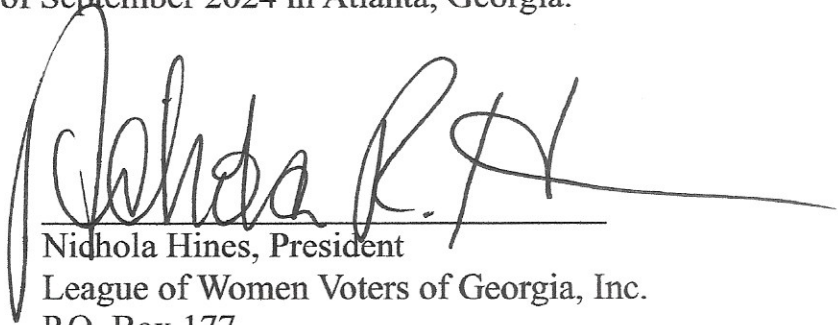 of September 2024 in Atlanta, Georgia.
Nichola R. H
Nichola Hines, President
League of Women Voters of Georgia, Inc.
P.O. Box 177